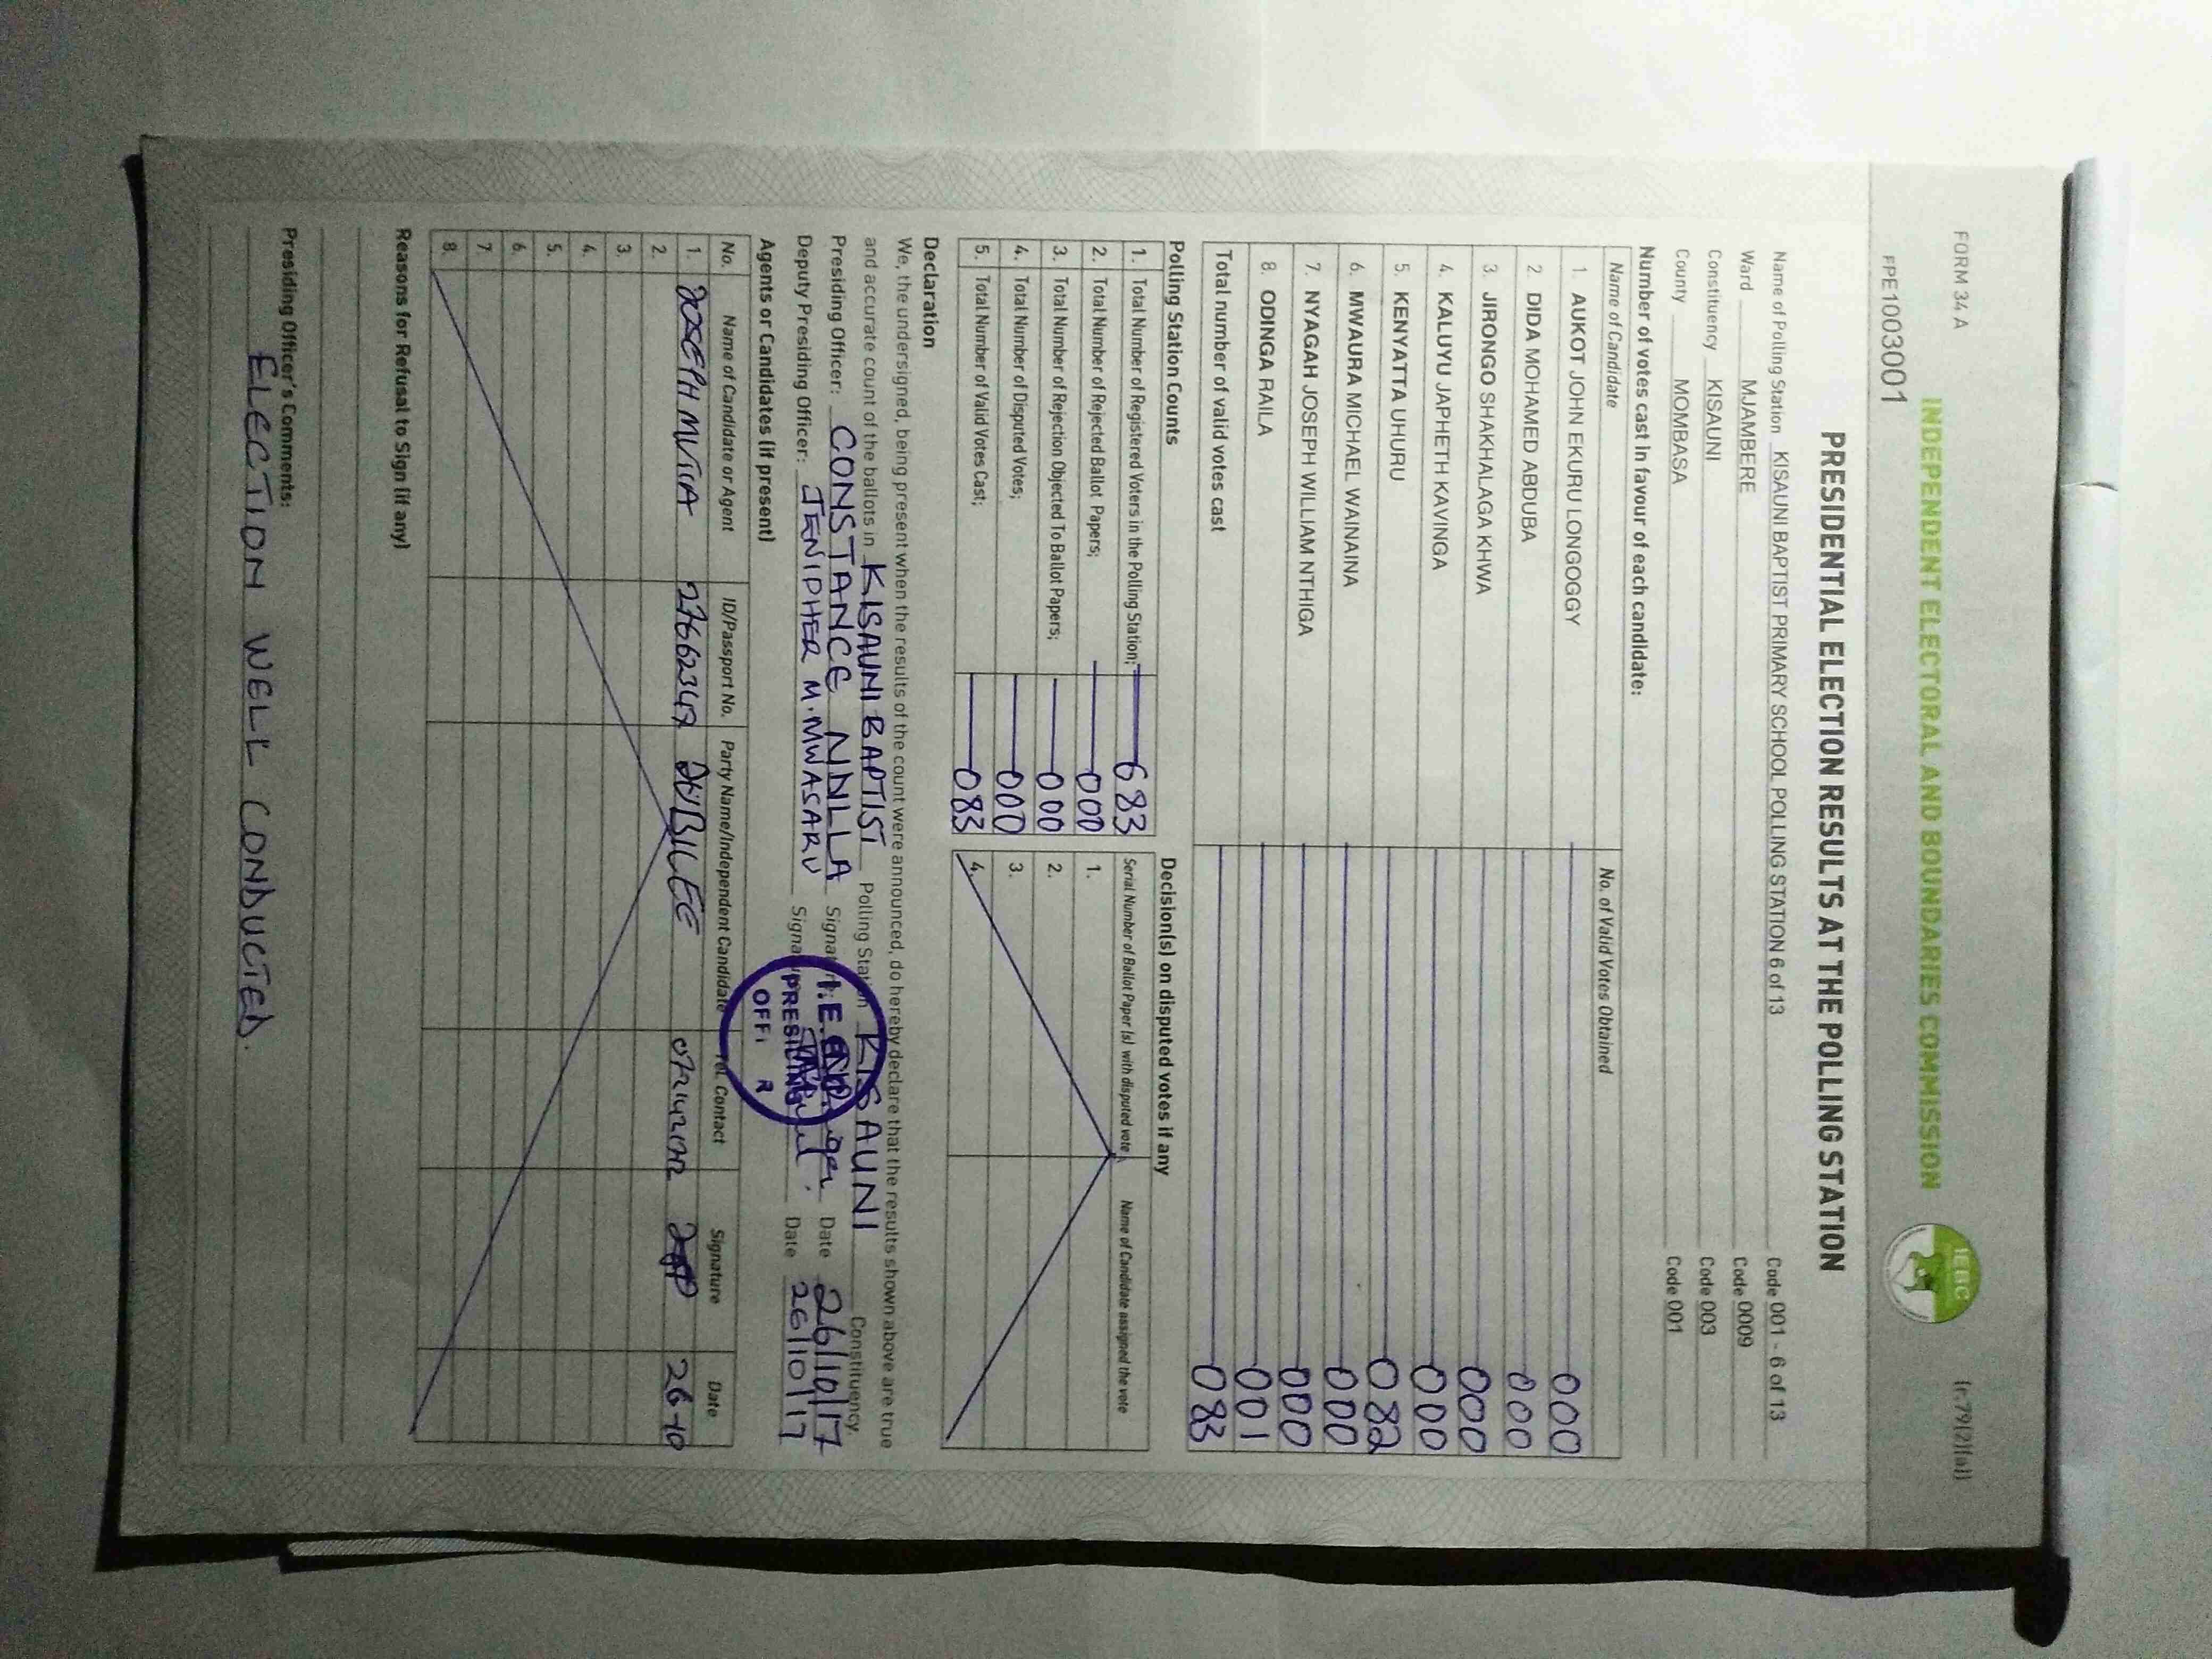 FORM 34 A (r.79(2)(a))
INDEPENDENT ELECTORAL AND BOUNDARIES COMMISSION
IEBC
FPE1003001
PRESIDENTIAL ELECTION RESULTS AT THE POLLING STATION
Name of Polling Station KISAUNI BAPTIST PRIMARY SCHOOL POLLING STATION 6 of 13 Code 001 - 6 of 13
Ward MJAMBERE Code 0009
Constituency KISAUNI Code 003
County MOMBASA Code 001
Number of votes cast in favour of each candidate:
Name of Candidate No. of Valid Votes Obtained
1. AUKOT JOHN EKURU LONGOGGY 000
2. DIDA MOHAMED ABDUBA 000
3. JIRONGO SHAKHALAGA KHWA 000
4. KALUYU JAPHETH KAVINGA 000
5. KENYATTA UHURU 082
6. MWAURA MICHAEL WAINAINA 000
7. NYAGAH JOSEPH WILLIAM NTHIGA 000
8. ODINGA RAILA 001
Total number of valid votes cast 083
Polling Station Counts
1. Total Number of Registered Voters in the Polling Station; 683
2. Total Number of Rejected Ballot Papers; 000
3. Total Number of Rejection Objected To Ballot Papers; 000
4. Total Number of Disputed Votes; 000
5. Total Number of Valid Votes Cast; 083
Decision(s) on disputed votes if any
Serial Number of Ballot Paper (s) with disputed vote Name of Candidate assigned the vote
1.
2.
3.
4.
Declaration
We, the undersigned, being present when the results of the count were announced, do hereby declare that the results shown above are true
and accurate count of the ballots in KISAUNI BAPTIST Polling Station KISAUNI Constituency.
Presiding Officer: CONSTANCE Date 26/10/17
Deputy Presiding Officer: JENIPHER M. MWASARU Date 26/10/17
I.E.
PRESIDING
Agents or Candidates (if present)
No. Name of Candidate or Agent ID/Passport No. Party Name/Independent Candidate Tel. Contact Signature Date
1. JOSEPH MUTIA JUBILEE 26-10
2.
3.
4.
5.
6.
7.
8.
Reasons for Refusal to Sign (if any)
Presiding Officer's Comments:
ELECTION WELL CONDUCTED.